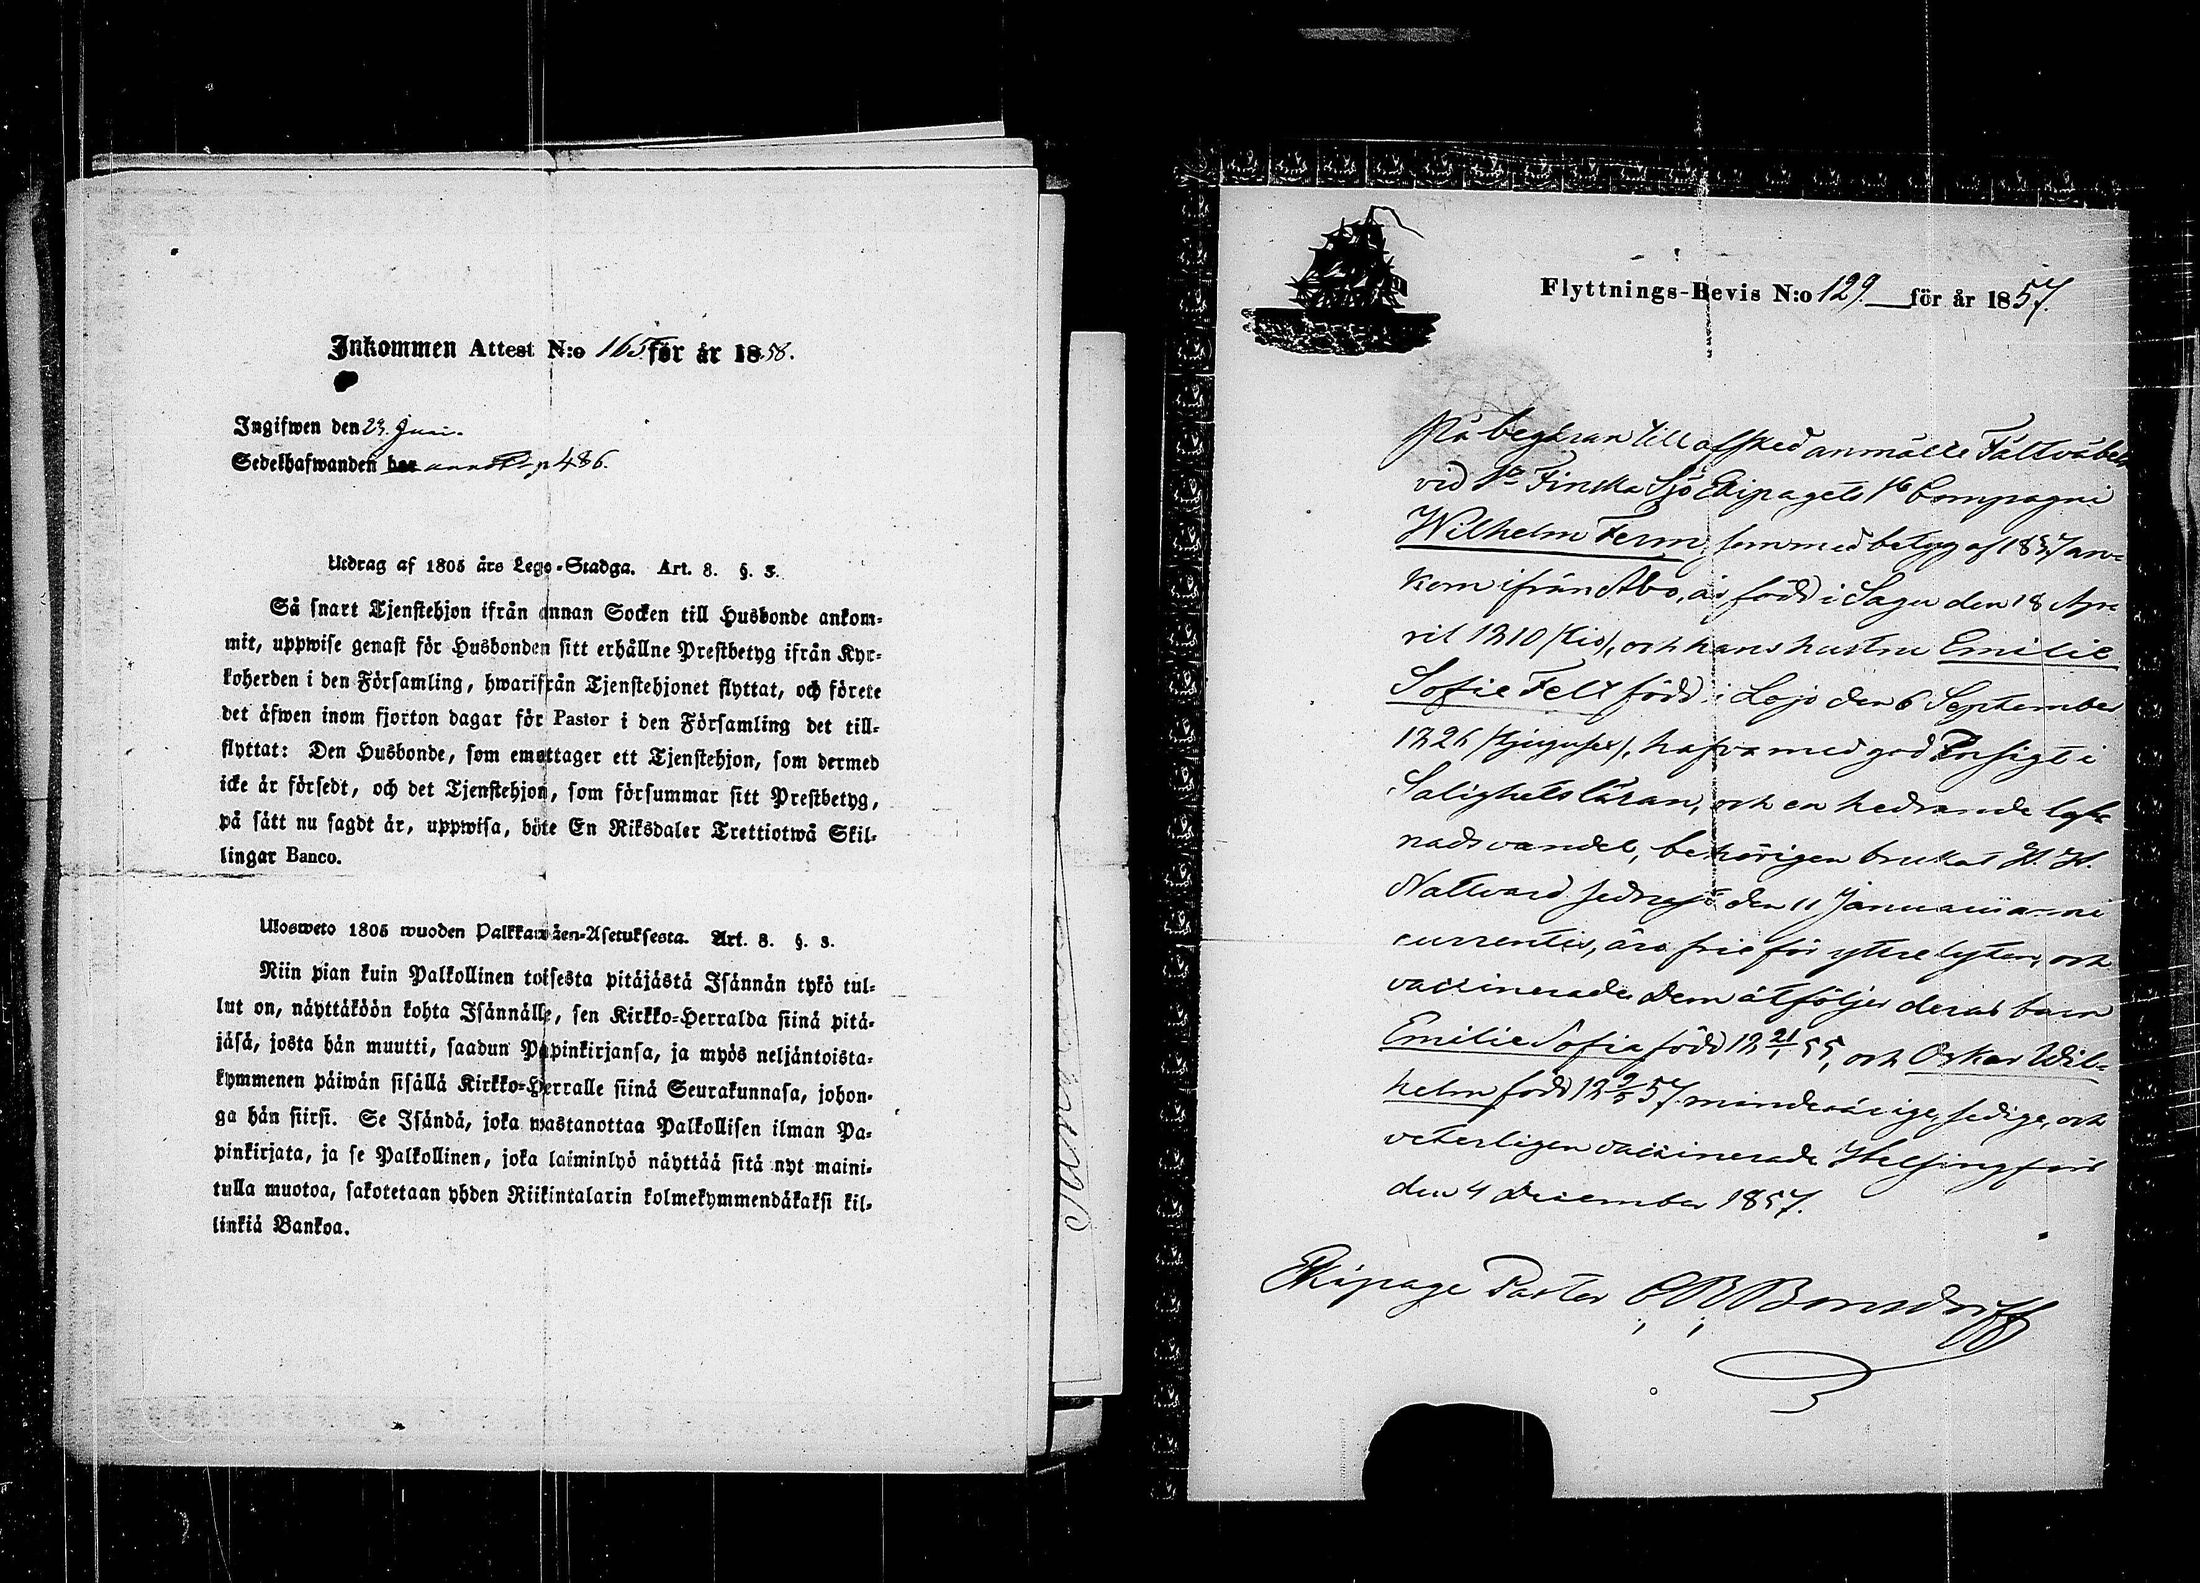 Inkommen Attest N:o 165 för år 1858.
Ingifwen den 23. Juni.
Sedelhafwanden har annot. p 486.
Utdrag af 1805 års Lego-Stadga. Art. 8. §. 3.
Så snart Tjenstehjon ifrån annan Socken till Husbonde ankom-
mit, uppwise genast för Husbonden sitt erhållne Prestbetyg ifrån Kyr-
koherden i den Församling, hwarifrån Tjenstehjonet flyttat, och förete
det äfwen inom fjorton dagar för Pastor i den Församling det till-
flyttat: Den Husbonde, som emottager ett Tjenstehjon, som dermed
icke är försedt, och det Tjenstehjon, som försummar sitt Prestbetyg,
på sätt nu sagdt är, uppwisa, böte En Riksdaler Trettiotwå Skil-
lingar Banco.
Ulosweto 1805 wuoden Palkkawäen-Asetuksesta. Art. 8. §. 3.
Niin pian kuin Palkollinen toisesta pitäjästä Isännän tykö tul-
lut on, näyttäköön kohta Isännälle, sen Kirkko-Herralda siinä pitä-
jäsä, josta hän muutti, saadun Papinkirjansa, ja myös neljäntoista-
kymmenen päiwän sisällä Kirkko-Herralle siinä Seurakunnasa, johon-
ga hän siirsi. Se Isändä, joka wastanottaa Palkollisen ilman Pa-
pinkirjata, ja se Palkollinen, joka laiminlyö näyttää sitä nyt maini-
tulla muotoa, sakotetaan yhden Riikintalarin kolmekymmendäkaksi kil-
linkiä Bankoa.
Flyttnings-Bevis N:o 129. för år 1857.
På begäran till afsked anmälte Fältväbeln
vid 1a Finska Sjö Ekipagets Compagni
Wilhelm Ferm, som med betyg af 1857 an-
kom ifrån Åbo, är född i Sagu den 18 Ap-
ril 1810 /tio/, och hans hustru Emilie
Sofie Felt född i Lojo den 6 September
1826 /tjugusex/, hafva med god Insigt i
Salighetsläran, och en hedrande lef-
nadsvandel, behörigen brukat H. H.
Nattvard sednast den 11 Januarii anni
currentis, äro frie för yttre lyten, och
vaccinerade. Dem åtföljer deras barn
Emilie Sofia född 18 21/1 55, och Oskar Wil-
helm född 18 9/5 57. minderårige, ledige, och
veterligen vaccinerade. Helsingfors
den 4 December 1857.
Ekipage Pastor C. R. Bonsdorff